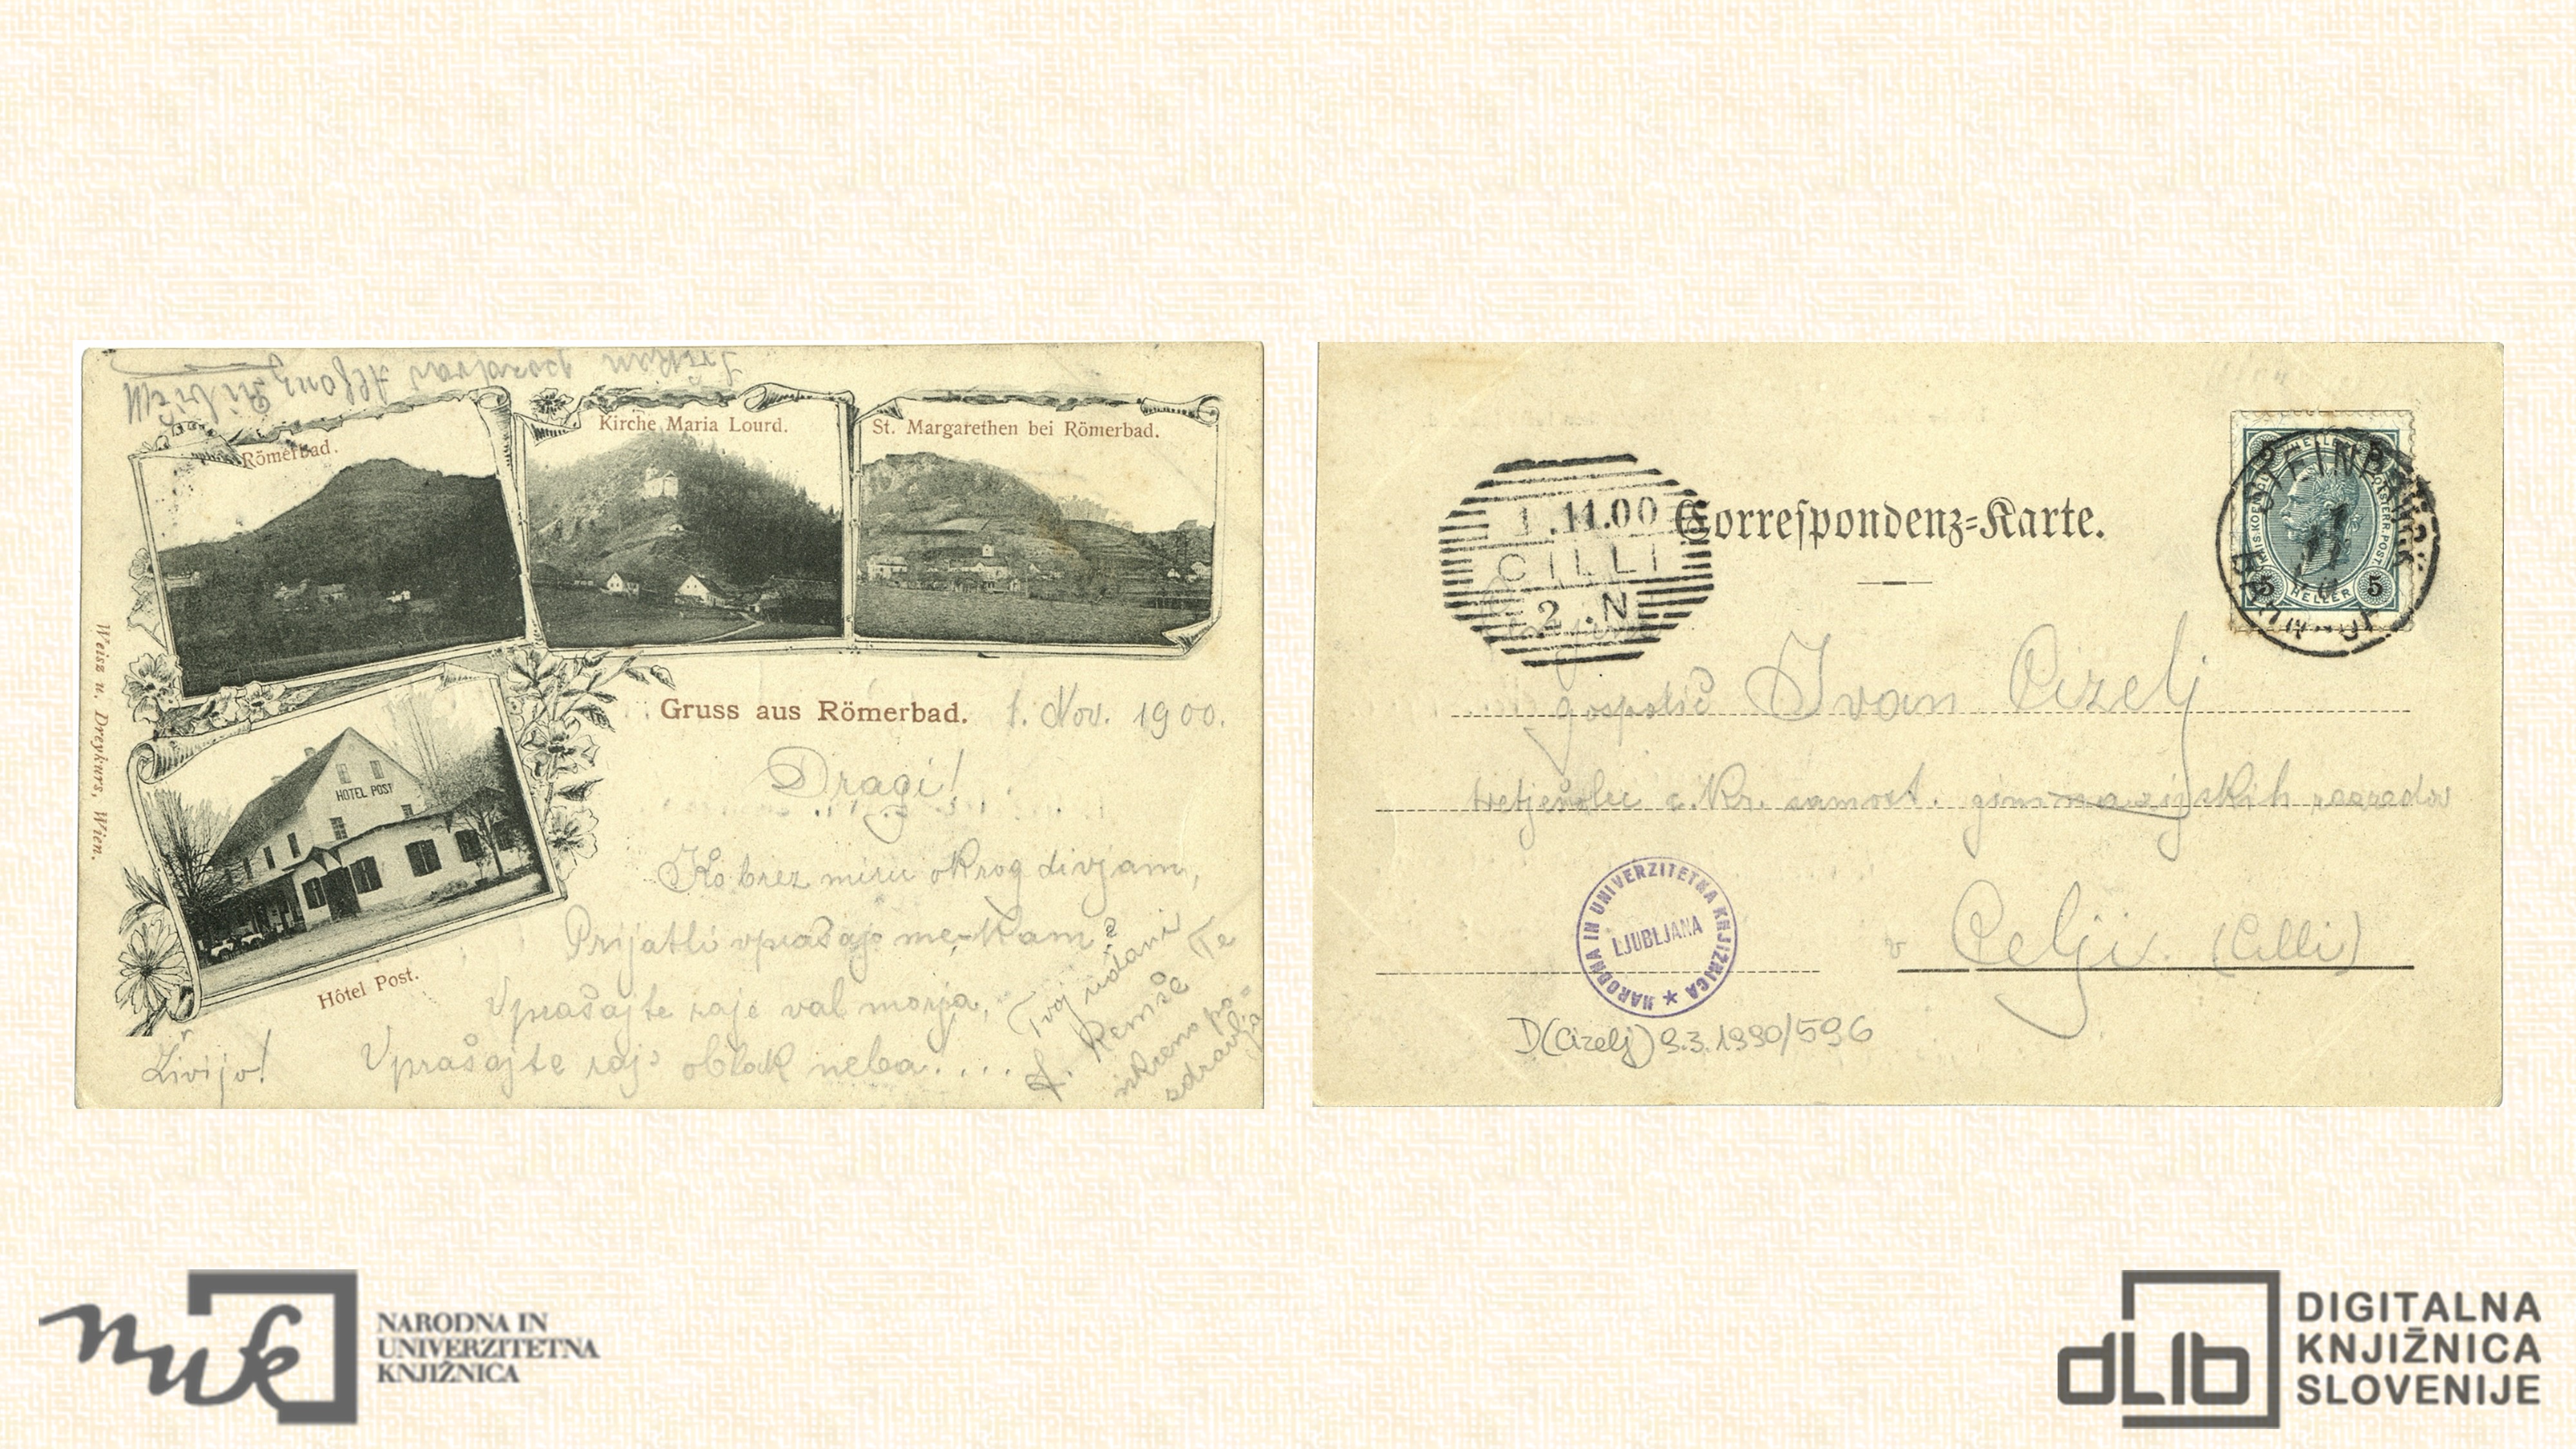 Srčkan pozdrav Alfonz
Römerbad.
Kirche Maria Lourd.
St. Margarethen bei Römerbad.
Weisz u. Dreykurs, Wien.
Gruss aus Römerbad. 1. Nov. 1900.
HOTEL POST
Hôtel Post.
Dragi!
Ko brez miru okrog divjam,
Prijatli vprašajo me-kam?
Vprašajte raje val morja,
Vprašajte rajo oblak neba....
Živijo!
Tvoj udani
A. Remše Te
iskreno po-
zdravlja
1.11.00
CILLI
2.N
Correspondenz=Karte.
STEINBRÜCK
5 HELLER 5
gospodič Ivan Cizelj
tretješolec c. kr. samost. gimnazijskih razredov
v Celji. (Cilli)
NARODNA IN UNIVERZITETNA KNJIŽNICA ★
LJUBLJANA
D(Cizelj) 9.3.1990/596
nuk
NARODNA IN
UNIVERZITETNA
KNJIŽNICA
dLib
DIGITALNA
KNJIŽNICA
SLOVENIJE